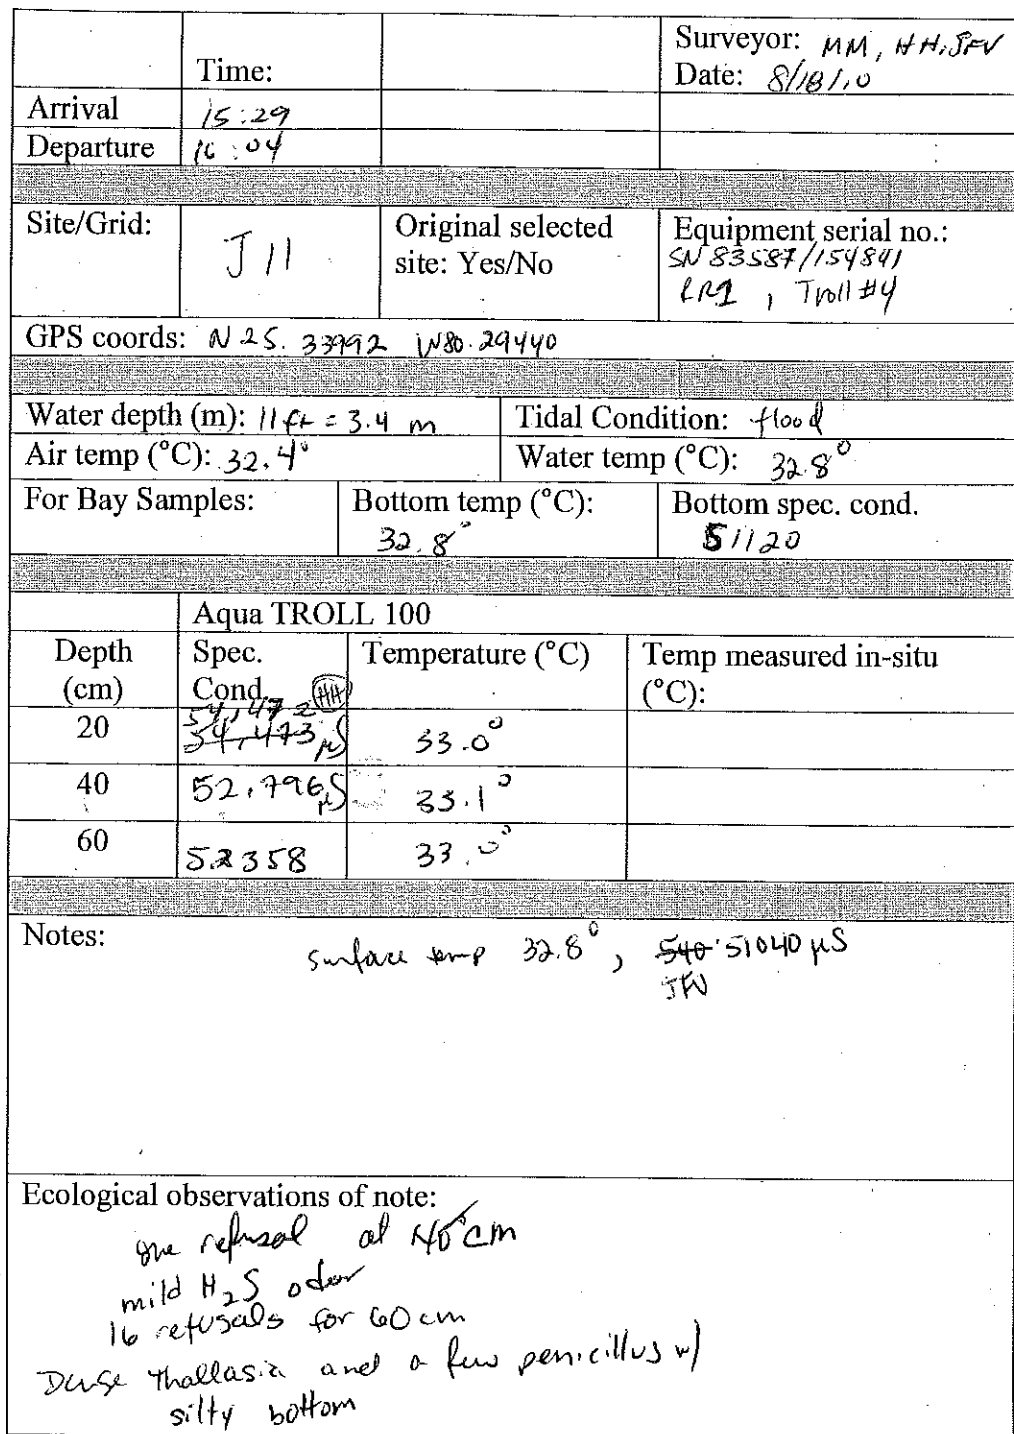 Surveyor: MM, HH, JFV
Time:
Date: 8/18/10
Arrival 15:29
Departure 16:04
Site/Grid: J11
Original selected site: Yes/No
Equipment serial no.:
SN 83587/154841
LR1, Troll #4
GPS coords: N 25.33992 W80.29440
Water depth (m): 11 ft = 3.4 m
Tidal Condition: flood
Air temp (°C): 32.4°
Water temp (°C): 32.8°
For Bay Samples:
Bottom temp (°C):
32.8°
Bottom spec. cond.
51120
Aqua TROLL 100
Depth (cm)
Spec. Cond.
Temperature (°C)
Temp measured in-situ (°C):
54,472 HH
20 54,473 µS 33.0°
40 52,796 µS 33.1°
60 52358 33.0°
Notes:
surface temp 32.8°, 540 51040 µS
JFV
Ecological observations of note:
one refusal at 40 cm
mild H₂S odor
16 refusals for 60 cm
Dense thallasia and a few penicillus w/
silty bottom